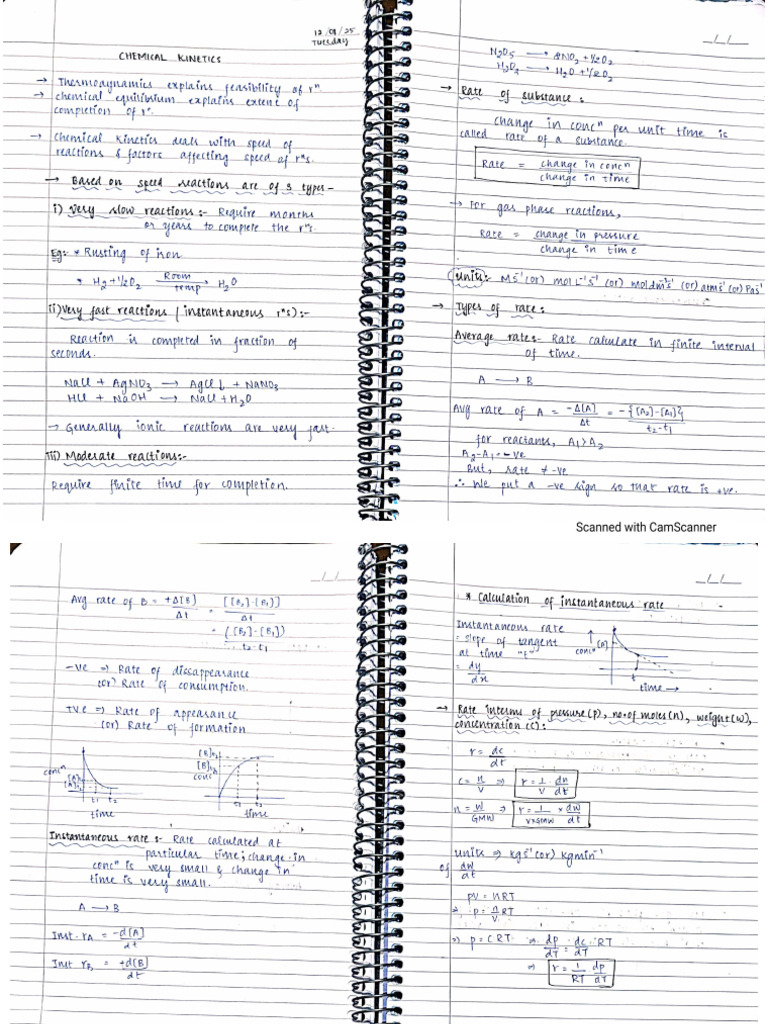 12/01/25
Tuesday
CHEMICAL KINETICS
→ Thermodynamics explains feasibility of rⁿ.
→ chemical equilibrium explains extent of
completion of rⁿ.
→ Chemical kinetics deals with speed of
reactions & factors affecting speed of rⁿs.
→ Based on speed reactions are of 3 types-
i) Very slow reactions:- Require months
or years to complete the rⁿs.
Eg: * Rusting of iron
* H₂ + ½O₂ —Room temp→ H₂O
ii) Very fast reactions (instantaneous rⁿs):-
Reaction is completed in fraction of
seconds.
NaCl + AgNO₃ → AgCl↓ + NaNO₃
HCl + NaOH → NaCl + H₂O
→ Generally ionic reactions are very fast.
iii) Moderate reactions:-
Require finite time for completion.
_/_/_
N₂O₅ → 2NO₂ + ½O₂
H₂O₂ → H₂O + ½O₂
→ Rate of substance:
change in concⁿ per unit time is
called rate of a substance.
Rate = change in concⁿ / change in time
→ For gas phase reactions,
Rate = change in pressure / change in time
Units:- Ms⁻¹ (or) mol L⁻¹s⁻¹ (or) mol dm⁻³s⁻¹ (or) atms⁻¹ (or) Pas⁻¹
→ Types of rate:
Average rate:- Rate calculate in finite interval
of time.
A → B
Avg rate of A = -Δ[A]/Δt = -{[A₂]-[A₁]}/t₂-t₁
for reactants, A₁>A₂
A₂-A₁ = -ve
But, rate ≠ -ve
∴ We put a -ve sign so that rate is +ve.
Scanned with CamScanner
_/_/_
Avg rate of B = +Δ[B]/Δt = [[B₂]-[B₁]]/Δt
= ([B₂]-[B₁])/t₂-t₁
-ve ⇒ Rate of dissappearance
(or) Rate of consumption.
+ve ⇒ Rate of appearance
(or) Rate of formation
concⁿ
t₁ t₂
time
[B]t₂
conc
t₁ t₂
time
Instantaneous rate:- Rate calculated at
particular time; change in
concⁿ is very small & change in
time is very small.
A → B
Inst. r_A = -d[A]/dt
Inst r_B = +d[B]/dt
_/_/_
* Calculation of instantaneous rate
Instantaneous rate
= slope of tangent
at time "t"
= dy/dx
concⁿ
t
time →
→ Rate interms of pressure(p), no.of moles(n), weight(w),
concentration (c):
r = dc/dt
c = n/V ⇒ r = 1/V dn/dt
n = W/GMW ⇒ r = 1/V×GMW × dw/dt
Units ⇒ kgs⁻¹ (or) kgmin⁻¹
of dw/dt
PV = nRT
⇒ p = n/V RT
⇒ p = CRT ⇒ dp/dT = dc/dT RT
⇒ r = 1/RT dp/dT